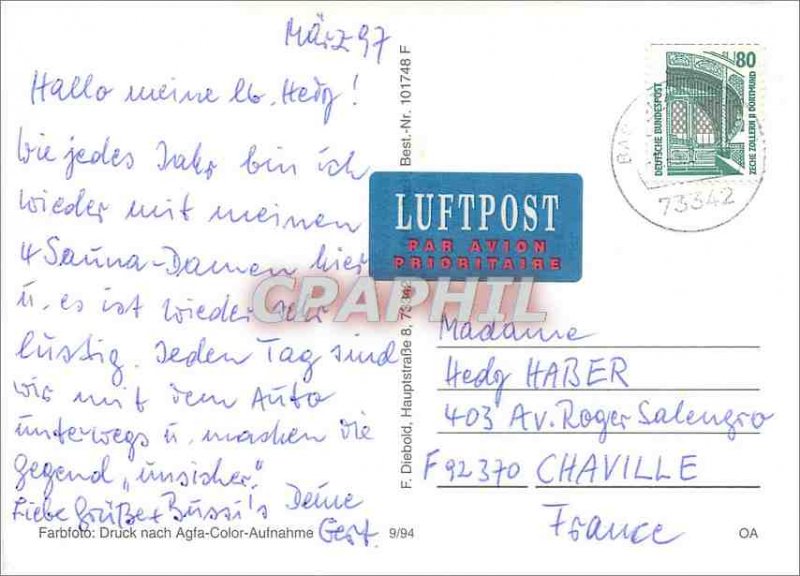 März 97
Hallo meine lb. Hedy!
Wie jedes Jahr bin ich
wieder mit meinen
4 Sauna-Damen hier
u. es ist wieder sehr
lustig. Jeden Tag sind
wir mit dem Auto
unterwegs u. machen die
Gegend „unsicher".
Liebe Grüße + Bussi's Deine
Gert.
Farbfoto: Druck nach Agfa-Color-Aufnahme
9/94
OA
F. Diebold, Hauptstraße 8, 7334
Best.-Nr. 101748 F
LUFTPOST
PAR AVION
PRIORITAIRE
80
DEUTSCHE BUNDESPOST
ZECHE ZOLLERN II DORTMUND
BA
73342
Madame
Hedy HABER
403 Av. Roger Salengro
F 92370 CHAVILLE
France
CPAPHIL